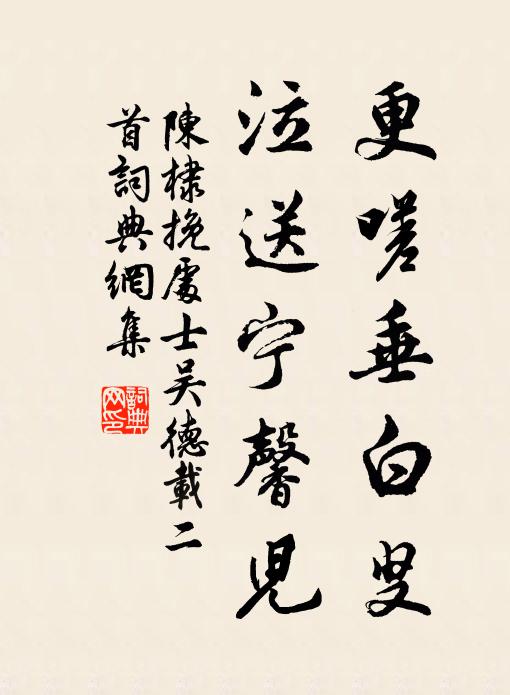 更嗟垂白叟
泣送宁馨児
陳棣挽處士吴德載二
首詞典網集
詞典
网印